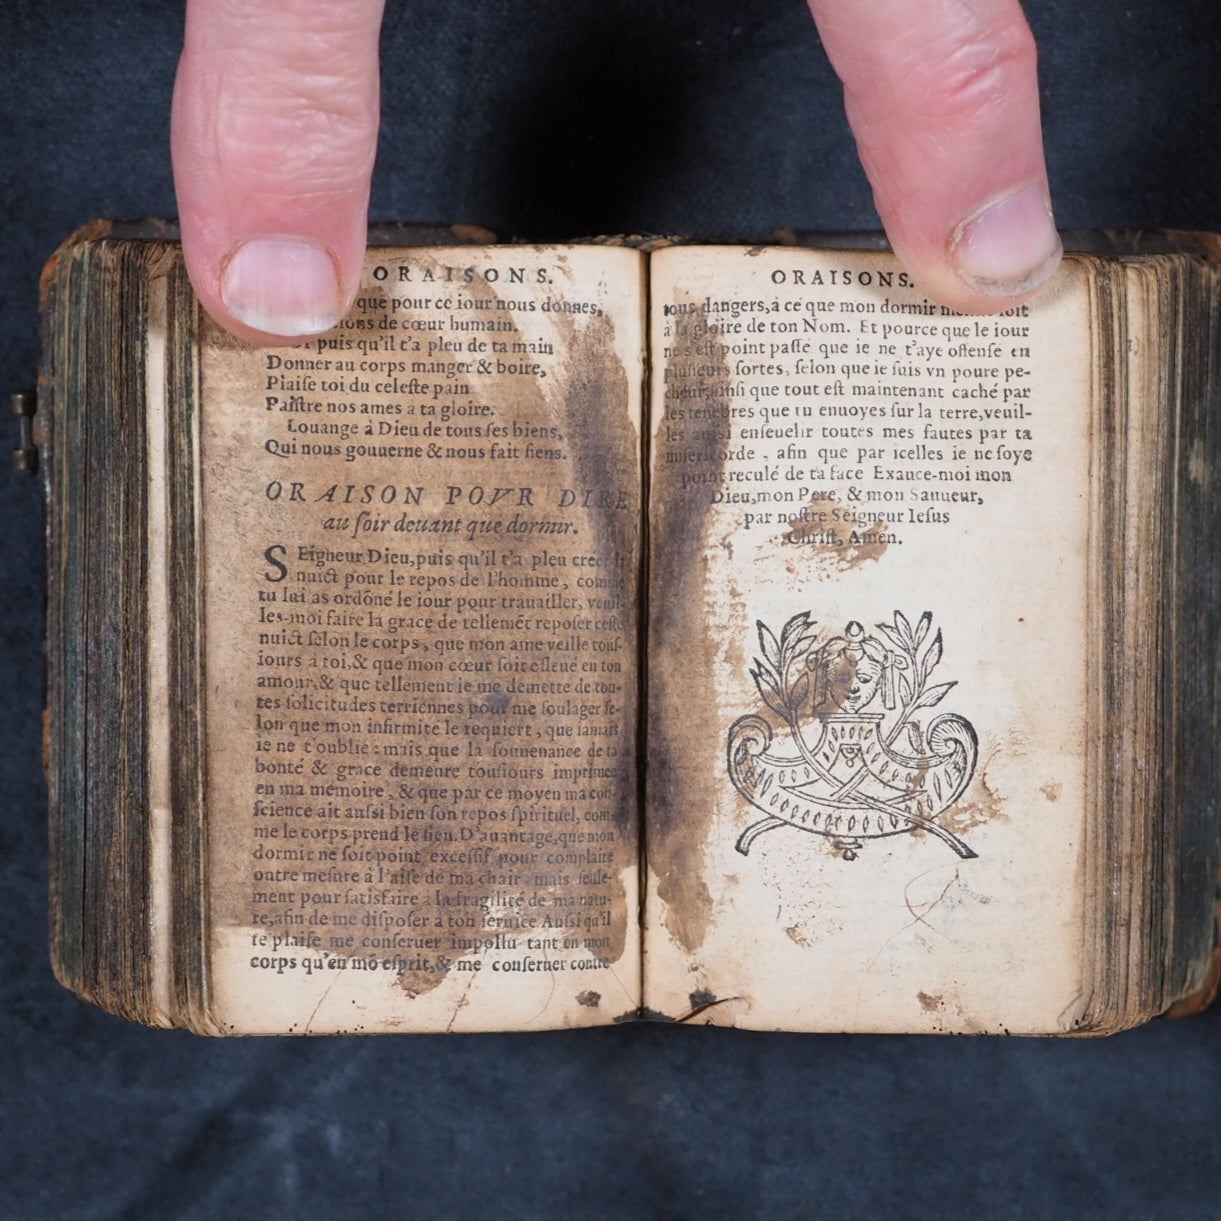 ORAISONS.
que pour ce iour nous donnes,
de cœur humain.
puis qu'il t'a pleu de ta main
Donner au corps manger & boire,
Plaise toi du celeste pain
Paistre nos ames a ta gloire.
Louange à Dieu de tous ses biens,
Qui nous gouuerne & nous fait siens.
ORAISON POVR DIRE
au soir deuant que dormir.
SEigneur Dieu, puis qu'il t'a pleu creer la
nuict pour le repos de l'homme, comme
tu lui as ordõné le iour pour trauailler, vueil-
les-moi faire la grace de tellemẽt reposer ceste
nuict selon le corps, que mon ame veille tous-
iours à toi, & que mon cœur soit esleué en ton
amour, & que tellement ie me demette de tou-
tes solicitudes terriennes pour me soulager se-
lon que mon infirmité le requiert, que iamais
ie ne t'oublie: mais que la souuenance de ta
bonté & grace demeure tousiours imprimee
en ma memoire, & que par ce moyen ma con-
science ait aussi bien son repos spirituel, com-
me le corps prend le sien. D'auantage, que mon
dormir ne soit point excessif pour complaire
outre mesure à l'aise de ma chair mais seule-
ment pour satisfaire a la fragilité de ma natu-
re, afin de me disposer a ton seruice Aussi qu'il
te plaise me conseruer impollu tant en mon
corps qu'en mõ esprit, & me conseruer contre
ORAISONS.
tous dangers, à ce que mon dormir mesme soit
à la gloire de ton Nom. Et pource que le iour
ne s'est point passé que ie ne t'aye offensé en
plusieurs sortes, selon que ie suis vn poure pe-
cheur, ainsi que tout est maintenant caché par
les tenebres que tu enuoyes sur la terre, veuil-
les aussi enseuelir toutes mes fautes par ta
misericorde, afin que par icelles ie ne soye
point reculé de ta face Exauce-moi mon
Dieu, mon Pere, & mon Sauueur,
par nostre Seigneur Iesus
Christ, Amen.